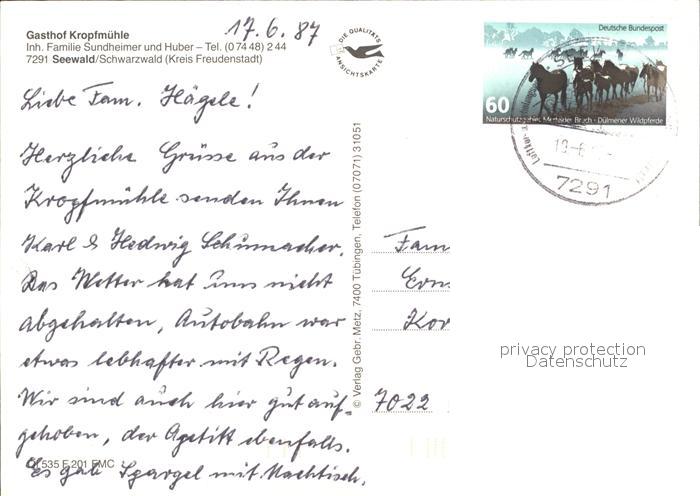 Gasthof Kropfmühle
Inh. Familie Sundheimer und Huber – Tel. (0 74 48) 2 44
7291 Seewald/Schwarzwald (Kreis Freudenstadt)
17.6.87
DIE QUALITÄTS
ANSICHTSKARTE
Deutsche Bundespost
60
Naturschutzgebiet Merfelder Bruch · Dülmener Wildpferde
7291
Liebe Fam. Hägele!
Herzliche Grüsse aus der
Kropfmühle senden Ihnen
Karl & Hedwig Schumacher.
Das Wetter hat uns nicht
abgehalten, Autobahn war
etwas lebhafter mit Regen.
Wir sind auch hier gut auf-
gehoben, der Apetitt ebenfalls.
Es gab Spargel mit Nachtisch.
535 F 201 EMC
© Verlag Gebr. Metz, 7400 Tübingen, Telefon (07071) 31051
Fam
Erns
Kor
7022
privacy protection
Datenschutz